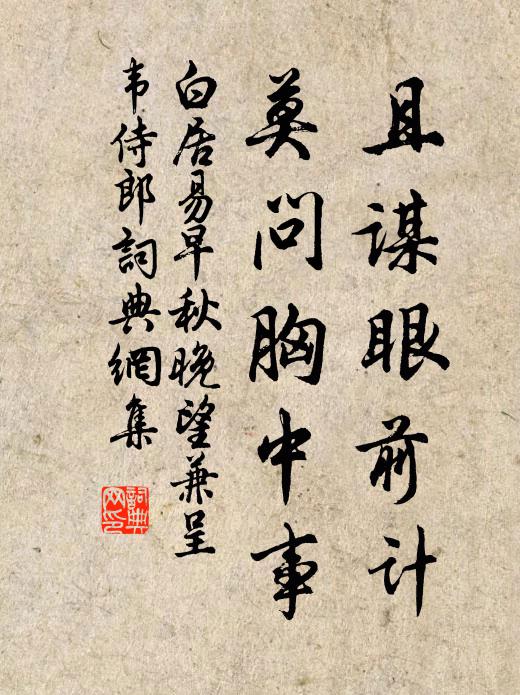 且谋眼前计
莫问胸中事
白居易早秋晚望兼呈
韦侍郎詞典網集
詞典网印